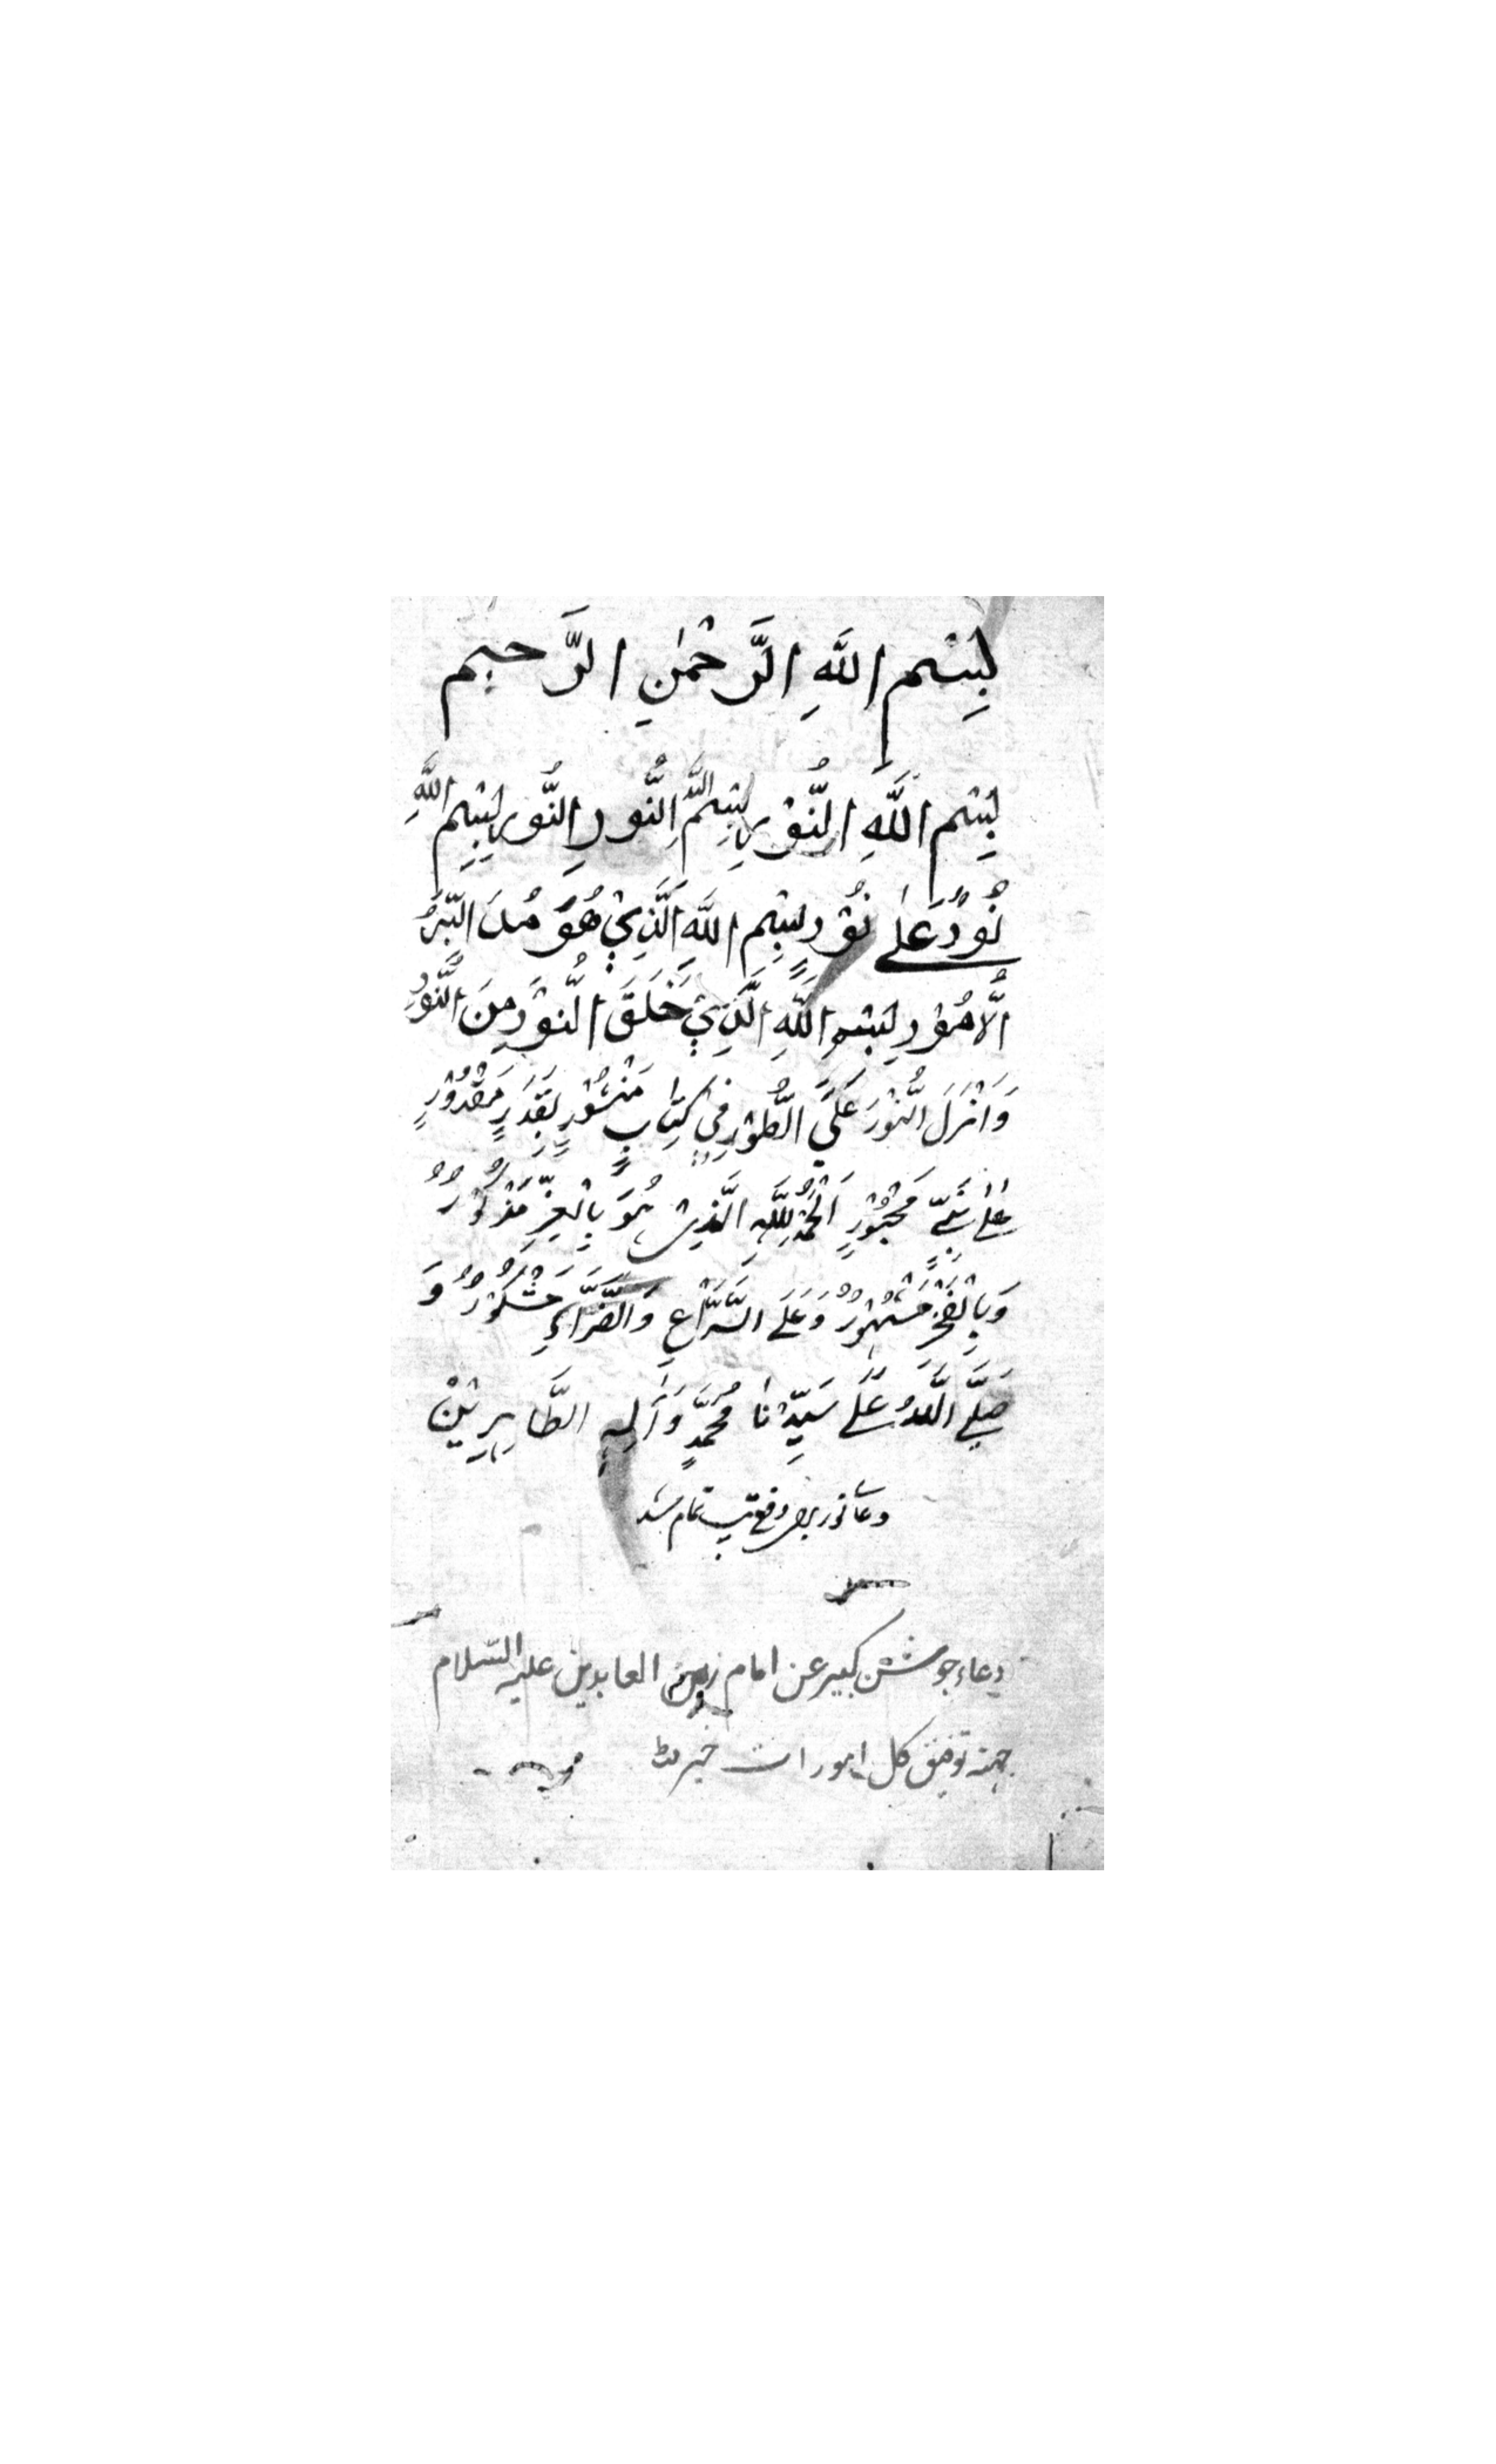 بِسْمِ اللهِ الرَّحْمٰنِ الرَّحِيم
بِسْمِ اللَّهِ النُّوْرِ بِسْمِ اللَّهِ النُّورِ النُّورِ بِسْمِ اللَّهِ
نُورٌ عَلٰى نُوْرٍ بِسْمِ اللَّهِ الَّذِيْ هُوَ مُدَبِّرُ
الْأُمُوْرِ بِسْمِ اللَّهِ الَّذِيْ خَلَقَ النُّوْرَ مِنَ النُّوْرِ
وَاَنْزَلَ النُّوْرَ عَلَى الطُّوْرِ فِيْ كِتَابٍ مَنْشُوْرٍ بِقَدَرٍ مَقْدُوْرٍ
عَلٰى نَبِيٍّ مَحْبُوْرٍ اَلْحَمْدُ لِلّٰهِ الَّذِيْ هُوَ بِالْعِزِّ مَذْكُوْرٌ
وَبِالْفَخْرِ مَشْهُوْرٌ وَعَلَى السَّرَّاءِ وَالضَّرَّاءِ مَشْكُوْرٌ وَ
صَلَّى اللَّهُ عَلٰى سَيِّدِنَا مُحَمَّدٍ وَاٰلِهِ الطَّاهِرِيْنَ
دعا نور برای دفع تب تمام شد
دعاء جوشن كبير عن امام زين العابدين عليه السّلام
جهته توفيق كل امورات خير